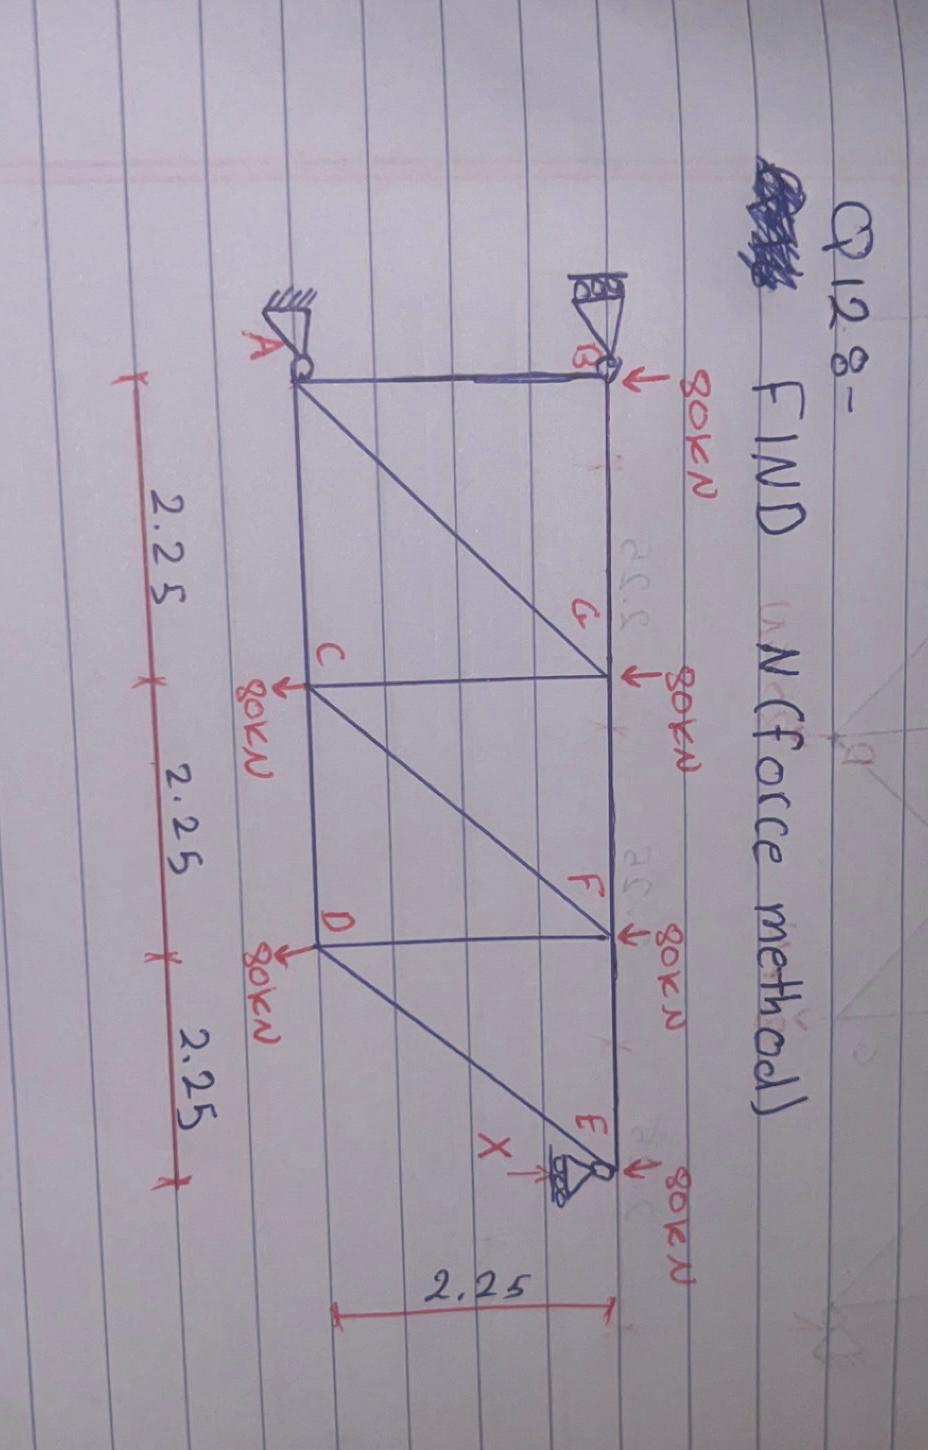 Q128-
FIND N(force method)
80KN
80KN
80KN
80KN
B
G
F
E
X
2.25
A
C
D
80KN
80KN
2.25
2.25
2.25